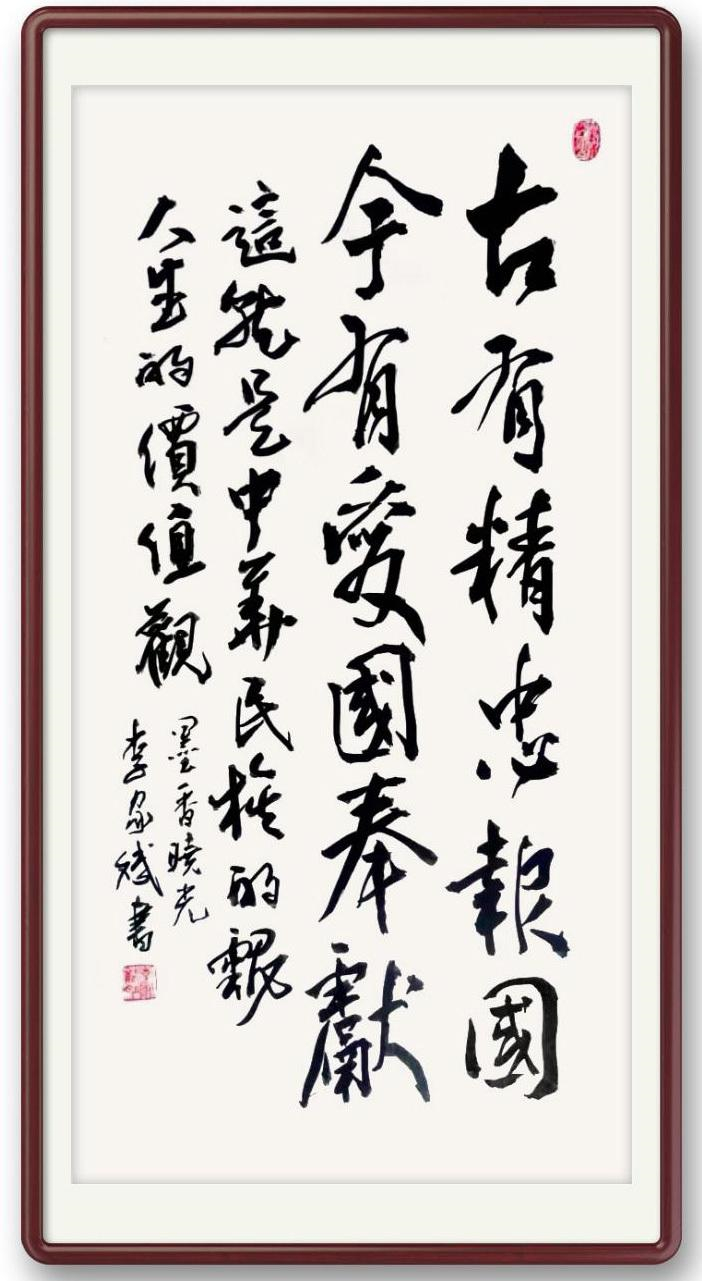 古有精忠報國
今有愛國奉獻
這就是中華民族的魂
人生的價值觀
墨香曉光
李家斌書